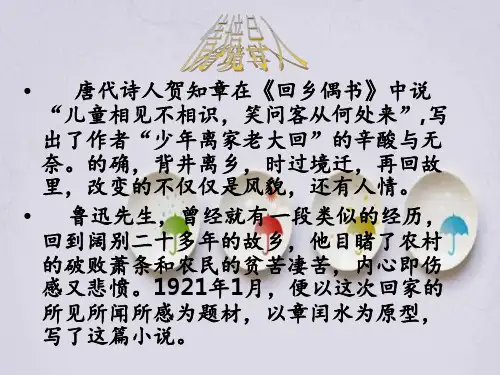 • 唐代诗人贺知章在《回乡偶书》中说
“儿童相见不相识，笑问客从何处来”,写
出了作者“少年离家老大回”的辛酸与无
奈。的确，背井离乡，时过境迁，再回故
里，改变的不仅仅是风貌，还有人情。
• 鲁迅先生，曾经就有一段类似的经历，
回到阔别二十多年的故乡，他目睹了农村
的破败萧条和农民的贫苦凄苦，内心即伤
感又悲愤。1921年1月，便以这次回家的
所见所闻所感为题材，以章闰水为原型，
写了这篇小说。